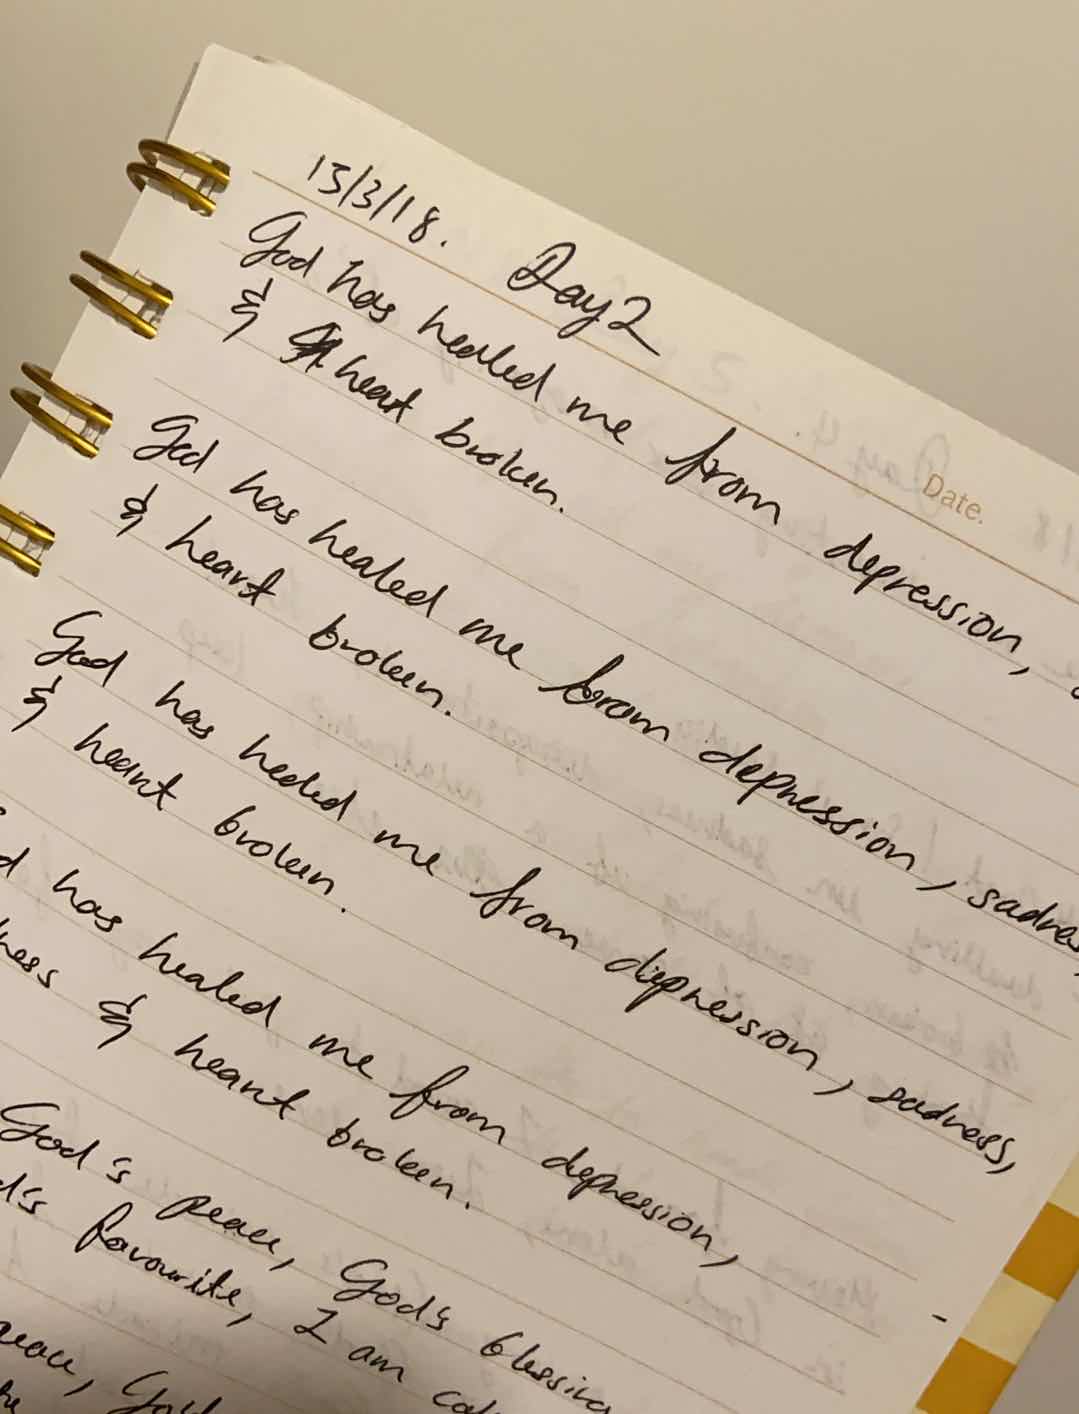 15/3/18. Day 2
Date.
God has healed me from depression,
& heart broken.
God has healed me from depression, sadness,
& heart broken.
God has healed me from depression, sadness,
& heart broken.
has healed me from depression,
& heart broken.
God's peace, God's blessing
favourite, I am